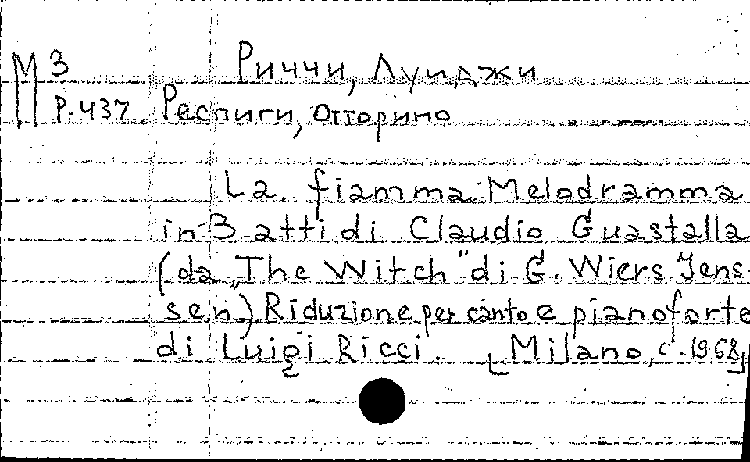 М3 Риччи, Луиджи
Р.437 Респиги, Отторино
La fiamma. Melodramma
in 3 atti di Claudio Guastalla
(da „The Witch" di G. Wiers Jens-
sen.) Riduzione per canto e pianoforte
di Luigi Ricci. [Milano, c. 1968]